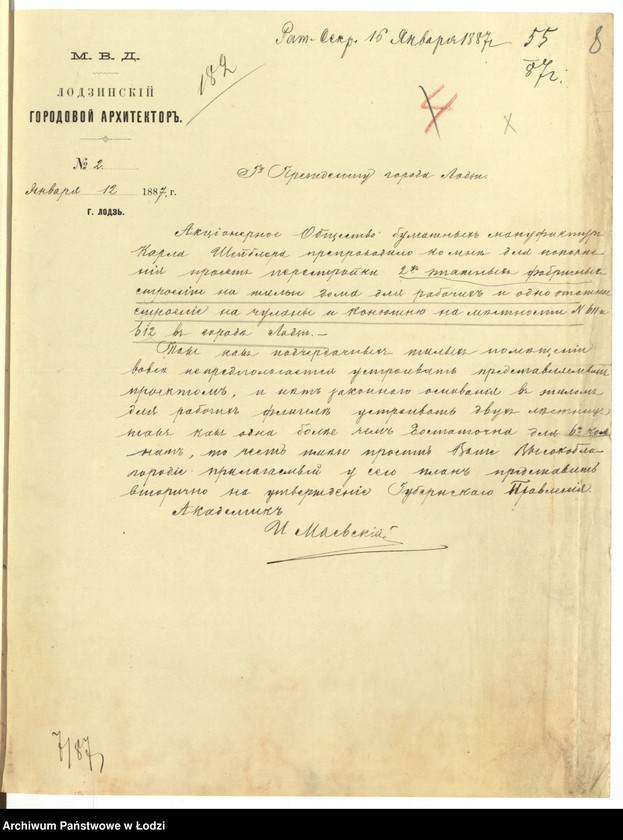 16 Января 1887 г. 55
87 г.
8
182
4
М. В. Д.
ЛОДЗИНСКІЙ
ГОРОДОВОЙ АРХИТЕКТОРЪ.
№ 2
Января 12 1887 г.
Г. ЛОДЗЬ.
Гⁿ Президенту города Лодзи.
Акціонерное Общество бумажныхъ мануфактуръ
Карла Шейблера препроводило ко мнѣ для
проектъ перестройки 2хъ этажныхъ фабричныхъ
строеній на жилые дома для рабочихъ и одноэтажн
строеніе на чуланы и конюшню на мѣстности № 611 и
612 въ городѣ Лодзи.–
Такъ какъ подчердачныхъ жилыхъ помѣщеній
вовсе не предполагается устроивать представляемымъ
проектомъ, и нѣтъ законнаго основанія въ жиломъ
для рабочихъ флигелѣ устроивать двухъ лѣстницъ
такъ какъ одна болѣе чѣмъ достаточна для 6ти ком
натъ, то честь имѣю просить Ваше Высокобла
городіе прилагаемый у сего планъ представить
вторично на утвержденіе Губернскаго Правленія.
Академикъ
И Маевскій
7/87
Archiwum Państwowe w Łodzi